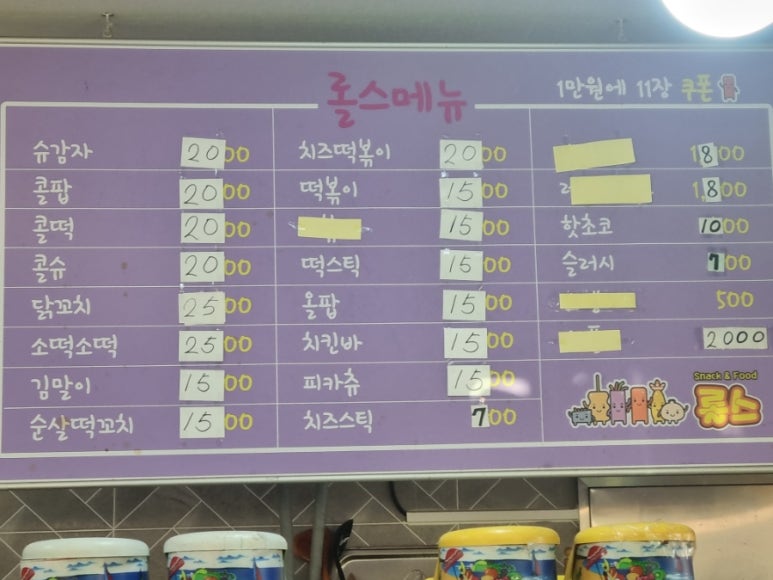 롤스메뉴
1만원에 11장 쿠폰
슈감자 2000
콜팝 2000
콜떡 2000
콜슈 2000
닭꼬치 2500
소떡소떡 2500
김말이 1500
순살떡꼬치 1500
치즈떡볶이 2000
떡볶이 1500
1500
떡스틱 1500
올팝 1500
치킨바 1500
피카츄 1500
치즈스틱 700
1,800
1,800
핫초코 1000
슬러시 700
500
2000
Snack & Food
롤스